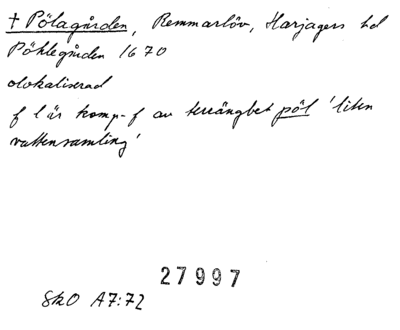 † Pölagården, Remmarlöv, Harjagers hd
Pöhlegården 1670
olokaliserad
f l är komp-f av terrängbet pöl 'liten
vattensamling'
27997
SkO A7:72